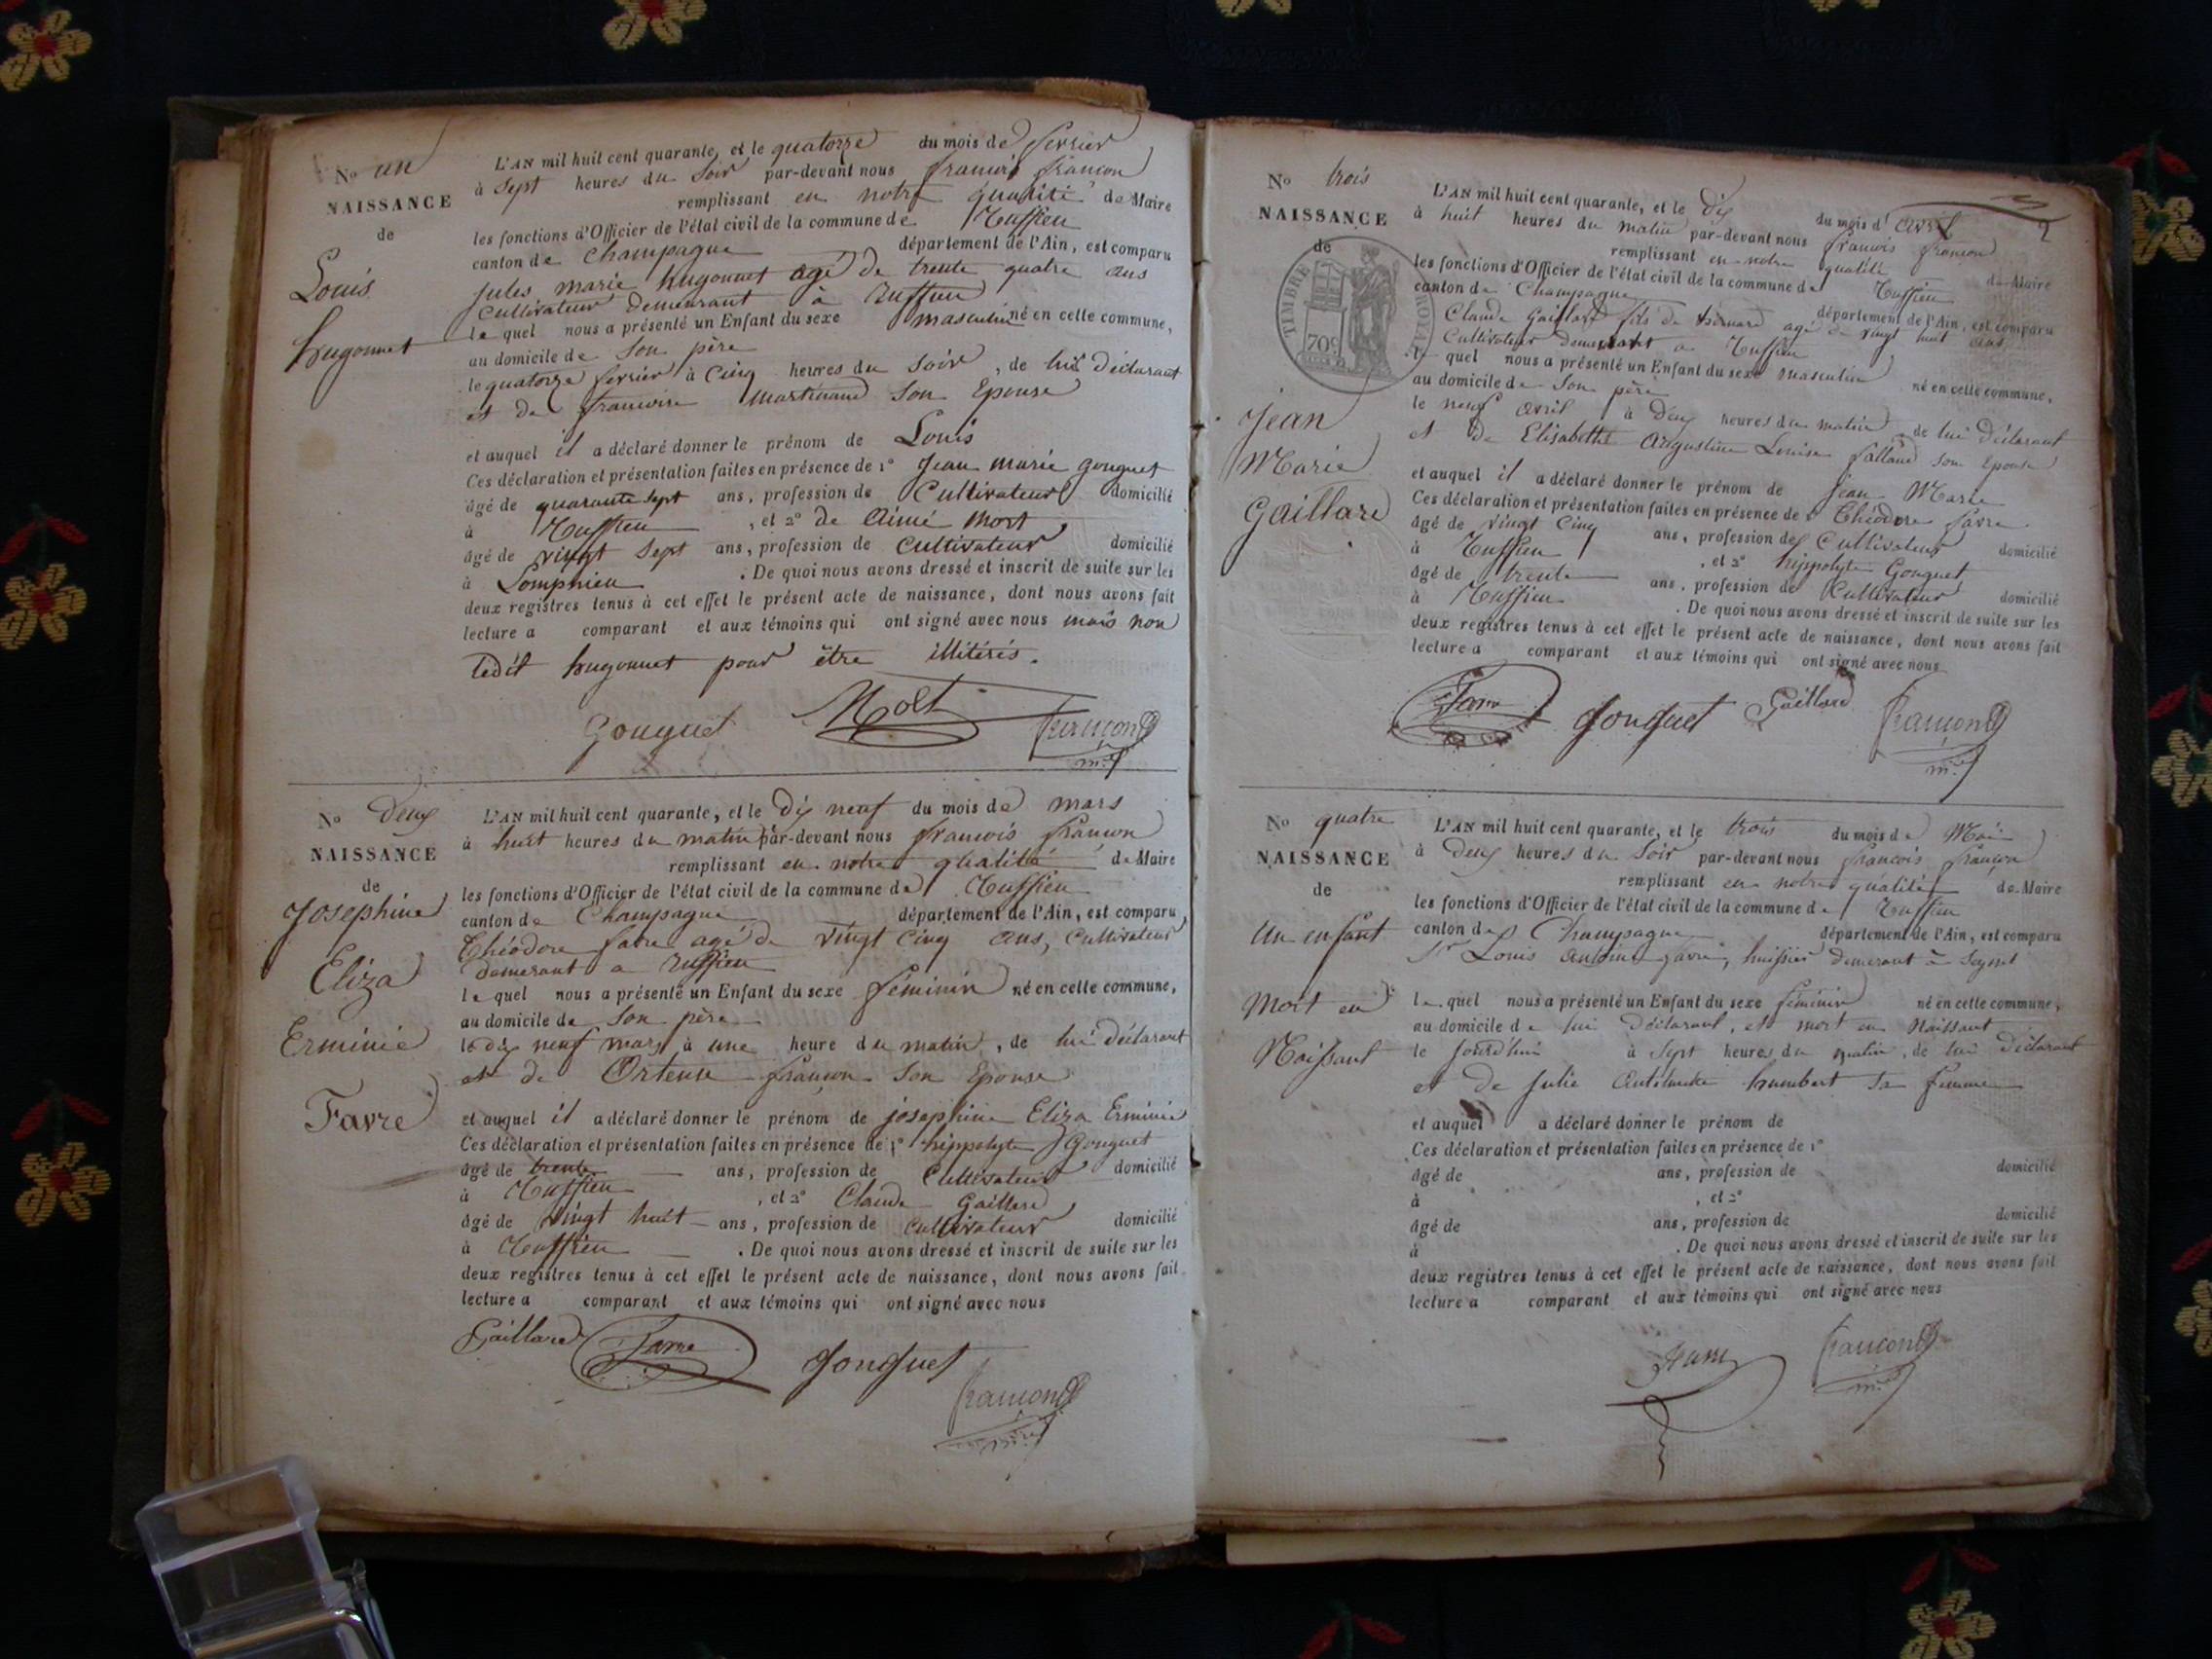 No un
NAISSANCE
de
Louis
hugonnet
L'AN mil huit cent quarante, et le quatorze du mois de fevrier
à sept heures du soir par-devant nous francois françon
remplissant en notre qualité de Maire
les fonctions d'Officier de l'état civil de la commune de Ruffieu
canton de Champagne département de l'Ain, est comparu
jules marie hugonnet agé de trente quatre ans
cultivateur demeurant à ruffieu
le quel nous a présenté un Enfant du sexe masculin né en cette commune,
au domicile de son père
le quatorze fevrier à cinq heures du soir, de lui déclarant
et de francoise Martinand son Epouse
et auquel il a déclaré donner le prénom de Louis
Ces déclaration et présentation faites en présence de 1° Jean marie gonguet
âgé de quarante sept ans, profession de Cultivateur domicilié
à Ruffieu, et 2° de Aimé Mort
âgé de vingt sept ans, profession de cultivateur domicilié
à Lompnieu. De quoi nous avons dressé et inscrit de suite sur les
deux registres tenus à cet effet le présent acte de naissance, dont nous avons fait
lecture a comparant et aux témoins qui ont signé avec nous mais non
ledit hugonnet pour être illitérés.
Gonguet Mort françon
m.re
No Deux
NAISSANCE
de
Josephine
Eliza
Erminie
Favre
L'AN mil huit cent quarante, et le dix neuf du mois de mars
à huit heures du matin par-devant nous francois françon
remplissant en notre qualité de Maire
les fonctions d'Officier de l'état civil de la commune de Ruffieu
canton de Champagne département de l'Ain, est comparu
Théodore favre agé de vingt cinq ans, cultivateur
demeurant a ruffieu
le quel nous a présenté un Enfant du sexe féminin né en cette commune,
au domicile de son père
le dix neuf mars à une heure du matin, de lui déclarant
et de Ortense françon son Epouse
et auquel il a déclaré donner le prénom de josephine Eliza Erminie
Ces déclaration et présentation faites en présence de 1° hippolyte Gonguet
âgé de trente ans, profession de Cultivateur domicilié
à Ruffieu, et 2° Claude Gaillard
âgé de vingt huit ans, profession de cultivateur domicilié
à Ruffieu. De quoi nous avons dressé et inscrit de suite sur les
deux registres tenus à cet effet le présent acte de naissance, dont nous avons fait
lecture a comparant et aux témoins qui ont signé avec nous
Gaillard Favre Gonguet
françon
m.re
2
No trois
NAISSANCE
de
TIMBRE ROYAL
70c
Jean
Marie
Gaillard
L'AN mil huit cent quarante, et le dix du mois d' avril
à huit heures du matin par-devant nous francois françon
remplissant en notre qualité de Maire
les fonctions d'Officier de l'état civil de la commune de Ruffieu
canton de Champagne département de l'Ain, est comparu
Claude Gaillard fils de bernard agé de vingt huit ans
Cultivateur demeurant a Ruffieu
le quel nous a présenté un Enfant du sexe masculin né en cette commune,
au domicile de son père
le neuf avril à deux heures du matin, de lui déclarant
et de Elisabeth Augustine Louise son Epouse
et auquel il a déclaré donner le prénom de Jean Marie
Ces déclaration et présentation faites en présence de 1° Théodore favre
âgé de vingt cinq ans, profession de Cultivateur domicilié
à Ruffieu, et 2° hippolyte Gonguet
âgé de trente ans, profession de Cultivateur domicilié
à Ruffieu. De quoi nous avons dressé et inscrit de suite sur les
deux registres tenus à cet effet le présent acte de naissance, dont nous avons fait
lecture a comparant et aux témoins qui ont signé avec nous
Favre Gonguet Gaillard françon
m.re
No quatre
NAISSANCE
de
Un enfant
Mort en
Naissant
L'AN mil huit cent quarante, et le trois du mois de Mai
à deux heures du soir par-devant nous francois françon
remplissant en notre qualité de Maire
les fonctions d'Officier de l'état civil de la commune de Ruffieu
canton de Champagne département de l'Ain, est comparu
Sr Louis antoine favre, huissier demeurant à
le quel nous a présenté un Enfant du sexe féminin né en cette commune,
au domicile de lui déclarant, et mort en Naissant
le jourdhui à sept heures du matin, de lui déclarant
et de julie humbert sa femme
et auquel a déclaré donner le prénom de
Ces déclaration et présentation faites en présence de 1°
âgé de ans, profession de domicilié
à , et 2°
âgé de ans, profession de domicilié
à . De quoi nous avons dressé et inscrit de suite sur les
deux registres tenus à cet effet le présent acte de naissance, dont nous avons fait
lecture a comparant et aux témoins qui ont signé avec nous
favre françon
m.re